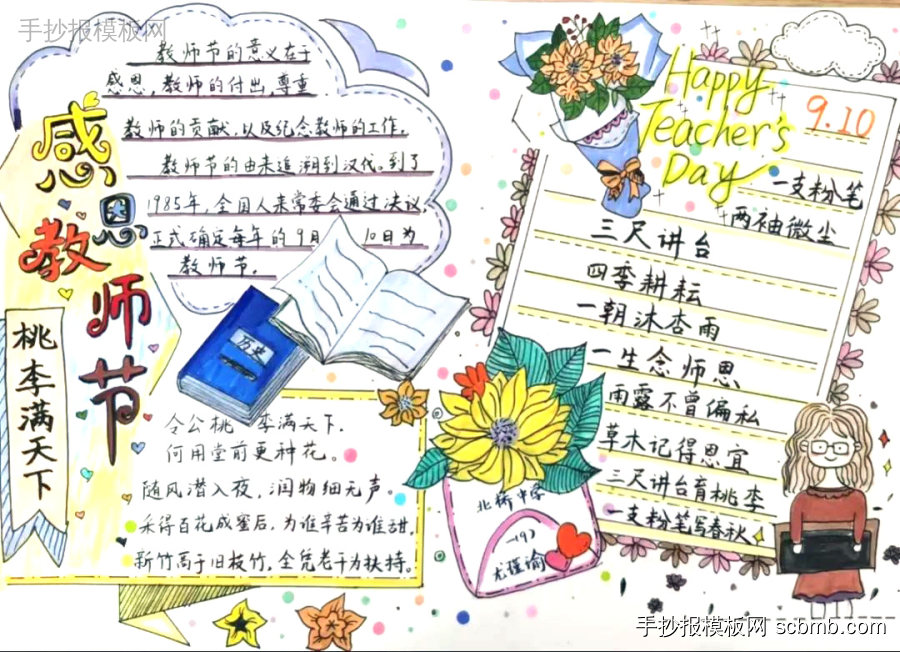 手抄报模板网
教师节的意义在于
感恩,教师的付出,尊重
教师的贡献,以及纪念教师的工作。
教师节的由来追溯到汉代。到了
1985年,全国人来常委会通过决议,
正式确定每年的9月 10日为
教师节。
感恩教师节
桃李满天下
历史
令公桃 李满天下.
何用堂前更种花。
随风潜入夜,润物细无声。
采得百花成蜜后,为谁辛苦为谁甜.
新竹高于旧枝竹,全凭老干为扶持。
Happy
Teacher's
Day
9.10
一支粉笔
两袖微尘
三尺讲台
四季耕耘
一朝沐杏雨
一生念师恩
雨露不曾偏私
草木记得恩宜
三尺讲台育桃李
一支粉笔写春秋
北桥中学
尤 瑜
手抄报模板网 scbmb.com